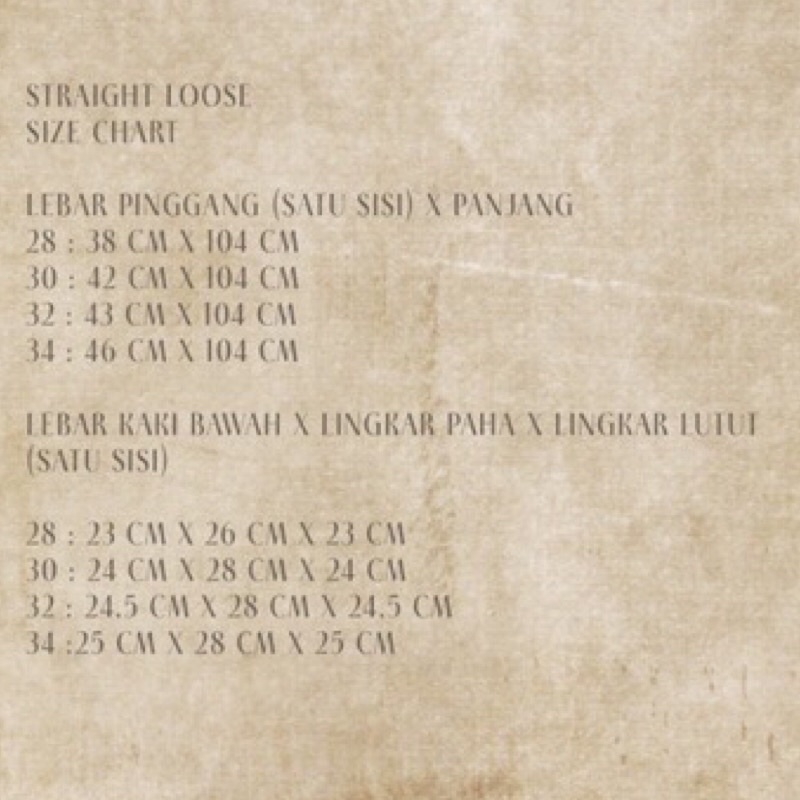 STRAIGHT LOOSE
SIZE CHART
LEBAR PINGGANG (SATU SISI) X PANJANG
28 : 38 CM X 104 CM
30 : 42 CM X 104 CM
32 : 43 CM X 104 CM
34 : 46 CM X 104 CM
LEBAR KAKI BAWAH X LINGKAR PAHA X LINGKAR LUTUT
(SATU SISI)
28 : 23 CM X 26 CM X 23 CM
30 : 24 CM X 28 CM X 24 CM
32 : 24.5 CM X 28 CM X 24.5 CM
34 :25 CM X 28 CM X 25 CM